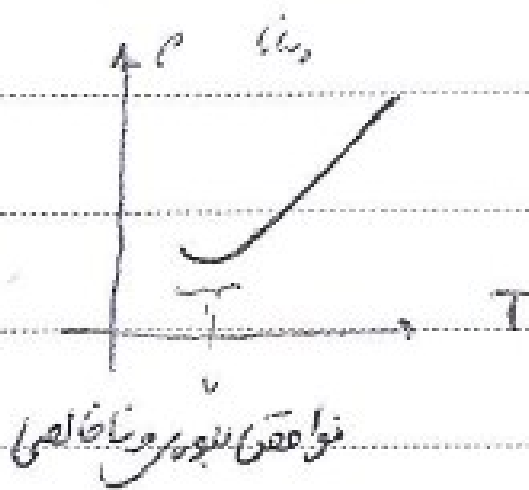 ρ فلز
T
نواقص بلوری و ناخالصی